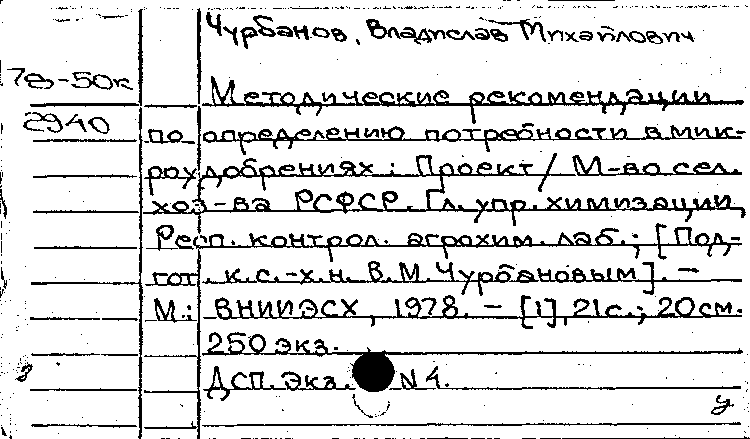 Чурбанов, Владислав Михайлович
7в-50к
Методические рекомендации
2940
по определению потребности в мик-
роудобрениях: Проект / М-во сел.
хоз-ва РСФСР. Гл. упр. химизации,
Респ. контрол. агрохим. лаб.; [Под-
гот. к.с.-х.н. В.М. Чурбановым]. –
М.: ВНИИЭСХ, 1978. – [1], 21с.; 20см.
250 экз.
Дсп. Экз. N 4.
у